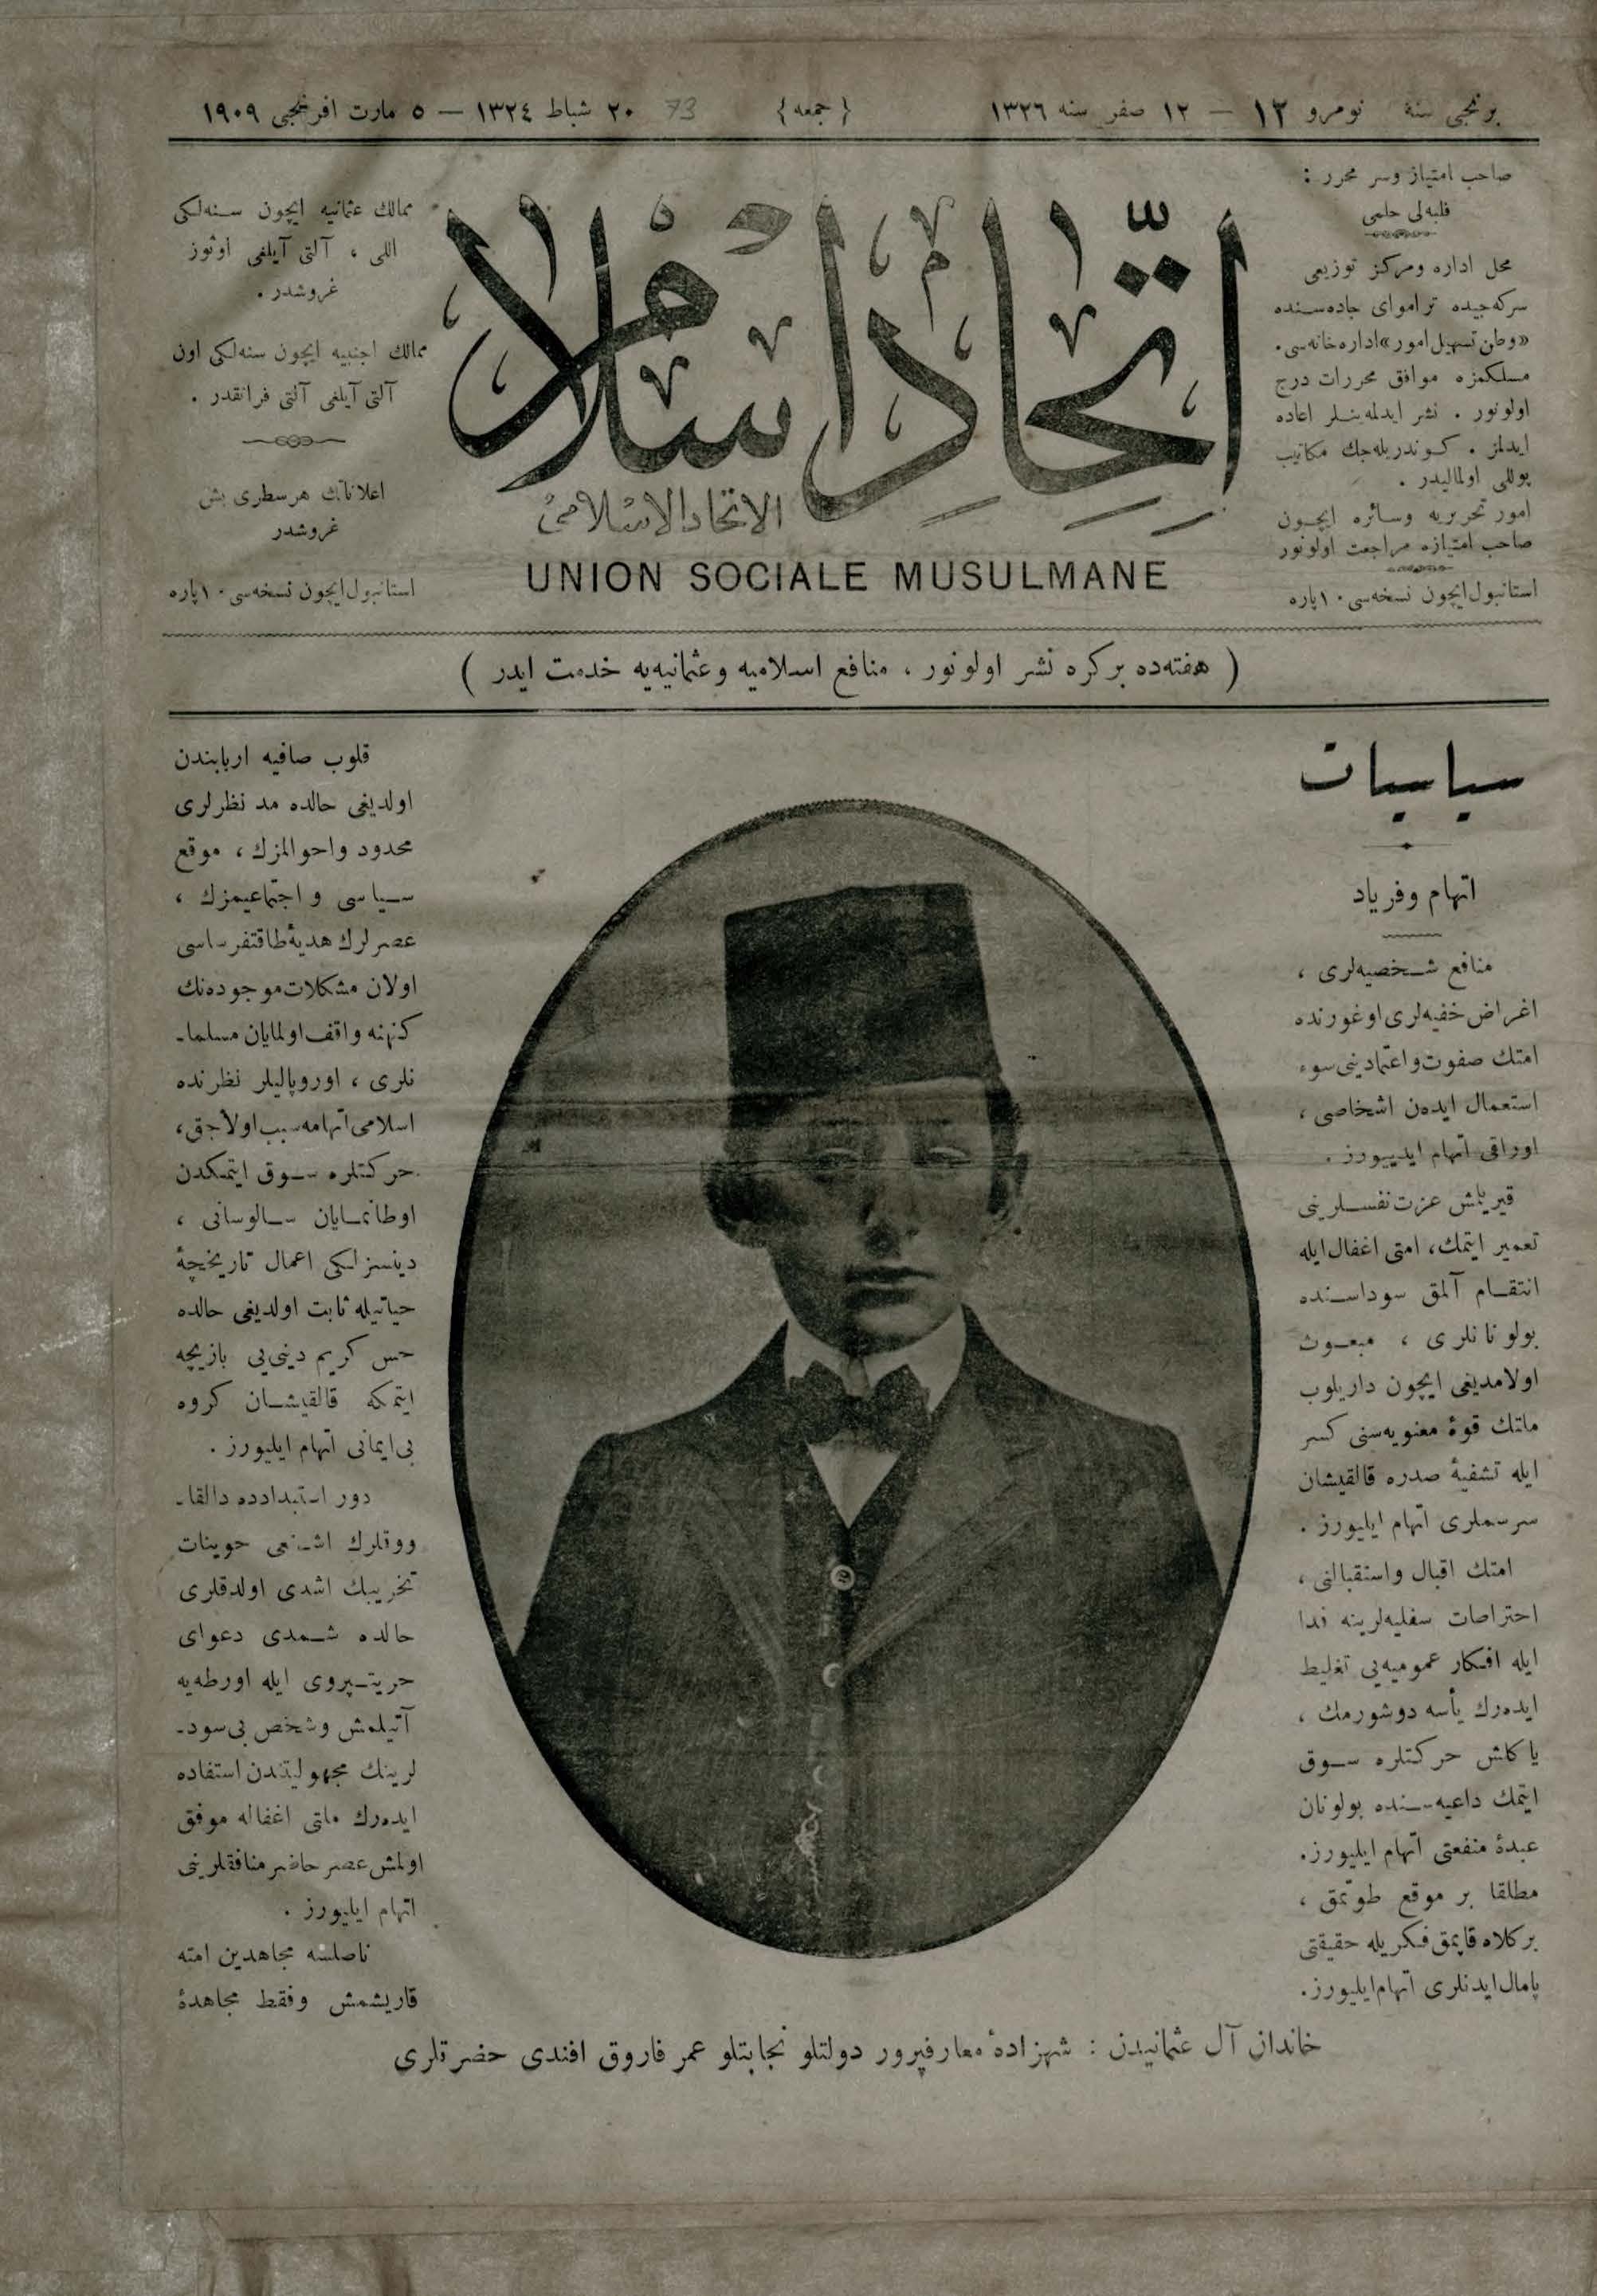 برنجی سنهٔ نومرو ۱۳ — ۱۲ صفر سنه ۱۳۲۶ {جمعه} 73 ۲۰ شباط ۱۳۲٤ — ٥ مارت افرنجی ۱۹۰۹
صاحب امتیاز وسر محرر :
فلبه‌لی حلمی
محل اداره ومرکز توزیعی
سرکه‌جیده تراموای جاده‌سنده
«وطن تسهیل امور» اداره‌خانه‌سی.
مسلکمزه موافق محررات درج
اولونور . نشر ایدلمه‌ینلر اعاده
ایدلمز . کوندریله‌جك مکاتیب
پوللی اولمالیدر .
امور تحریریه وسائره ایچون
صاحب امتیازه مراجعت اولونور
استانبول ایچون نسخه‌سی ۱۰ پاره
اتحاد اسلام
الاتحاد الاسلامی
UNION SOCIALE MUSULMANE
ممالك عثمانیه ایچون سنه‌لکی
اللی ، آلتی آیلغی اوتوز
غروشدر .
ممالك اجنبیه ایچون سنه‌لکی اون
آلتی آیلغی آلتی فرانقدر .
اعلاناتك هر سطری بش
غروشدر
استانبول ایچون نسخه‌سی ۱۰ پاره
( هفته‌ده بر کره نشر اولونور ، منافع اسلامیه وعثمانیه‌یه خدمت ایدر )
سیاسیات
اتهام وفریاد
منافع شخصیه‌لری ،
اغراض خفیه‌لری اوغورنده
امتك صفوت واعتمادینی سوء
استعمال ایده‌ن اشخاصی ،
اوراقی اتهام ایدییورز .
قیریلمش عزت نفسلرینی
تعمیر ایتمك، امتی اغفال ایله
انتقام آلمق سوداسنده
بولونانلری ، مبعوث
اولامدیغی ایچون داریلوب
ملتك قوهٔ معنویه‌سنی کسر
ایله تشفیهٔ صدره قالقیشان
سرسملری اتهام ایلیورز .
امتك اقبال واستقبالنی ،
احتراصات سفلیه‌لرینه فدا
ایله افکار عمومیه‌یی تغلیط
ایده‌رك یأسه دوشورمك ،
یاکلش حرکتلره سوق
ایتمك داعیه‌سنده بولونان
عبدهٔ منفعتی اتهام ایلیورز.
مطلقا بر موقع طوتمق ،
برکلاه قاپمق فکریله حقیقتی
پامال ایدنلری اتهام ایلیورز.
قلوب صافیه اربابندن
اولدیغی حالده مد نظرلری
محدود واحوالمزك ، موقع
سیاسی واجتماعیمزك ،
عصرلرك هدیهٔ طاقتفرساسی
اولان مشکلات موجوده‌نك
کنهنه واقف اولمایان مسلما-
نلری ، اوروپالیلر نظرنده
اسلامی اتهامه سبب اولاجق،
حرکتلره سوق ایتمکدن
اوطانمایان سالوسانی ،
دینسزلکی اعمال تاریخچهٔ
حیاتیله ثابت اولدیغی حالده
حس کریم دینی‌یی بازیچه
ایتمکه قالقیشان کروه
بی‌ایمانی اتهام ایلیورز .
دور استبدادده دالقا-
ووقلرك اشنعی حوینات
تخریبك اشدی اولدقلری
حالده شمدی دعوای
حریت‌پروی ایله اورطه‌یه
آتیلمش وشخص بی‌سود-
لرینك مجهولیتندن استفاده
ایده‌رك ملتی اغفاله موفق
اولمش عصر حاضر منافقلرینی
اتهام ایلیورز .
ناصلسه مجاهدین امته
قاریشمش وفقط مجاهدهٔ
خاندان آل عثمانیدن : شهزادهٔ معارفپرور دولتلو نجابتلو عمر فاروق افندی حضرتلری